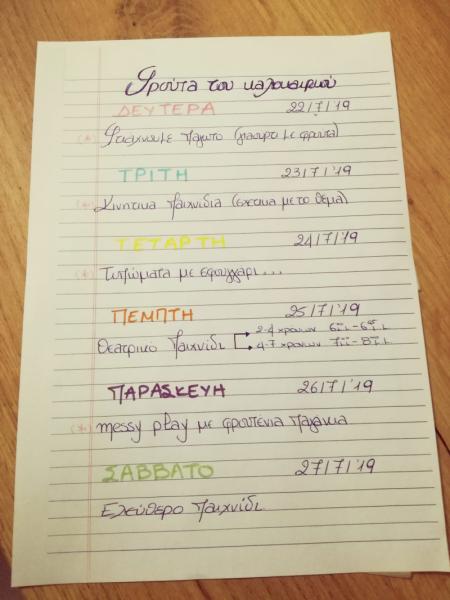 Φρούτα του καλοκαιριού
ΔΕΥΤΕΡΑ 22/7/19
(*) Φτιάχνουμε παγωτό (γιαούρτι με φρούτα)
ΤΡΙΤΗ 23/7/'19
(*) Κινητικά παιχνίδια (σχετικά με το θέμα)
ΤΕΤΑΡΤΗ 24/7/'19
(*) Τυπώματα με σφουγγάρι...
ΠΕΜΠΤΗ 25/7/'19
Θεατρικό παιχνίδι 2-4 χρονών 6π.μ.-6π.μ.
4-7 χρονών
ΠΑΡΑΣΚΕΥΗ 26/7/'19
(*) messy play με φρουτένια παγάκια
ΣΑΒΒΑΤΟ 27/7/'19
Ελεύθερο παιχνίδι.